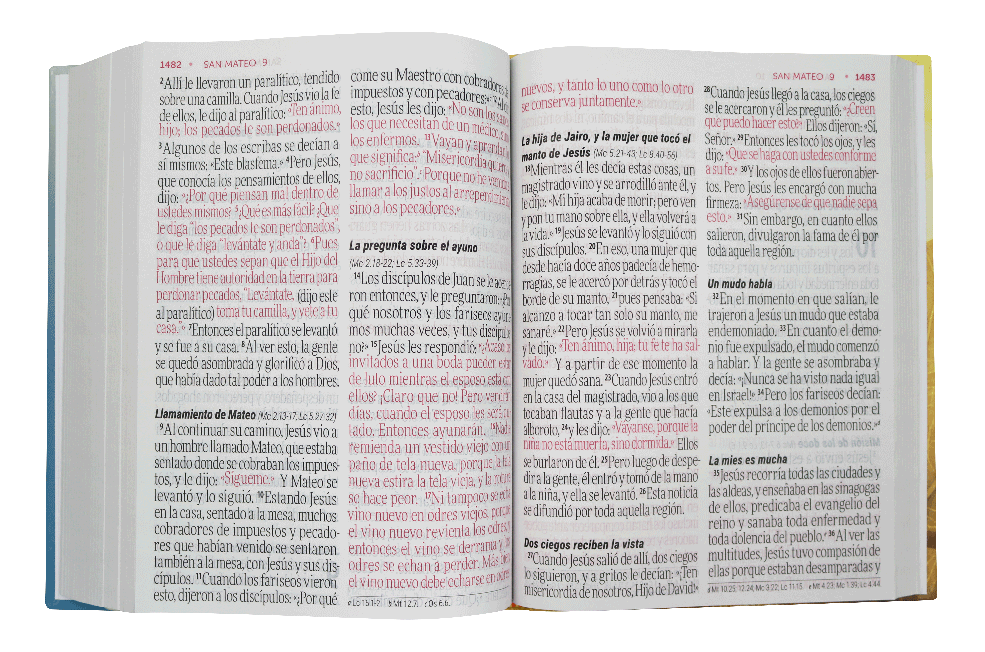 1482 • SAN MATEO 9
²Allí le llevaron un paralítico, tendido
sobre una camilla. Cuando Jesús vio la fe
de ellos, le dijo al paralítico: «Ten ánimo,
hijo; los pecados te son perdonados.»
³Algunos de los escribas se decían a
sí mismos: «Este blasfema.» ⁴Pero Jesús,
que conocía los pensamientos de ellos,
dijo: «¿Por qué piensan mal dentro de
ustedes mismos? ⁵¿Qué es más fácil? ¿Que
le diga “los pecados te son perdonados”,
o que le diga “levántate y anda”? ⁶Pues
para que ustedes sepan que el Hijo del
Hombre tiene autoridad en la tierra para
perdonar pecados, “Levántate, (dijo éste
al paralítico) toma tu camilla, y vete a tu
casa.”» ⁷Entonces el paralítico se levantó
y se fue a su casa. ⁸Al ver esto, la gente
se quedó asombrada y glorificó a Dios,
que había dado tal poder a los hombres.
Llamamiento de Mateo (Mc 2.13-17; Lc 5.27-32)
⁹Al continuar su camino, Jesús vio a
un hombre llamado Mateo, que estaba
sentado donde se cobraban los impues-
tos, y le dijo: «Sígueme.» Y Mateo se
levantó y lo siguió. ¹⁰Estando Jesús
en la casa, sentado a la mesa, muchos
cobradores de impuestos y pecado-
res que habían venido se sentaron
también a la mesa, con Jesús y sus dis-
cípulos. ¹¹Cuando los fariseos vieron
esto, dijeron a los discípulos: «¿Por qué
come su Maestro con cobradores de
impuestos y con pecadores?» ¹²Al oír
esto, Jesús les dijo: «No son los sanos
los que necesitan de un médico, sino
los enfermos. ¹³Vayan y aprendan lo
que significa: “Misericordia quiero,
no sacrificio”. Porque no he venido a
llamar a los justos al arrepentimiento,
sino a los pecadores.»
La pregunta sobre el ayuno
(Mc 2.18-22; Lc 5.33-39)
¹⁴Los discípulos de Juan se le acerca-
ron entonces, y le preguntaron: «¿Por
qué nosotros y los fariseos ayuna-
mos muchas veces, y tus discípulos
no?» ¹⁵Jesús les respondió: «¿Acaso los
invitados a una boda pueden estar
de luto mientras el esposo está con
ellos? ¡Claro que no! Pero vendrán
días, cuando el esposo les será qui-
tado. Entonces ayunarán. ¹⁶Nadie
remienda un vestido viejo con un
paño de tela nueva, porque la tela
nueva estira la tela vieja, y la rotura
se hace peor. ¹⁷Ni tampoco se echa
vino nuevo en odres viejos, porque
el vino nuevo revienta los odres, y
entonces el vino se derrama y los
odres se echan a perder. Más bien,
el vino nuevo debe echarse en odres
a Lc 15.1-2. b Mt 12.7. c Os 6.6.
nuevos, y tanto lo uno como lo otro
se conserva juntamente.»
La hija de Jairo, y la mujer que tocó el
manto de Jesús (Mc 5.21-43; Lc 8.40-56)
¹⁸Mientras él les decía estas cosas, un
magistrado vino y se arrodilló ante él, y
le dijo: «Mi hija acaba de morir; pero ven
y pon tu mano sobre ella, y ella volverá a
la vida.» ¹⁹Jesús se levantó y lo siguió con
sus discípulos. ²⁰En eso, una mujer que
desde hacía doce años padecía de hemo-
rragias, se le acercó por detrás y tocó el
borde de su manto, ²¹pues pensaba: «Si
alcanzo a tocar tan solo su manto, me
sanaré.» ²²Pero Jesús se volvió a mirarla
y le dijo: «Ten ánimo, hija; tu fe te ha sal-
vado.» Y a partir de ese momento la
mujer quedó sana. ²³Cuando Jesús entró
en la casa del magistrado, vio a los que
tocaban flautas y a la gente que hacía
alboroto, ²⁴y les dijo: «Váyanse, porque la
niña no está muerta, sino dormida.» Ellos
se burlaron de él. ²⁵Pero luego de despe-
dir a la gente, él entró y tomó de la mano
a la niña, y ella se levantó. ²⁶Esta noticia
se difundió por toda aquella región.
Dos ciegos reciben la vista
²⁷Cuando Jesús salió de allí, dos ciegos
lo siguieron, y a gritos le decían: «¡Ten
misericordia de nosotros, Hijo de David!»
SAN MATEO 9 • 1483
²⁸Cuando llegó a la casa, los ciegos
se le acercaron y él les preguntó: «¿Creen
que puedo hacer esto?» Ellos dijeron: «Sí,
Señor.» ²⁹Entonces les tocó los ojos, y les
dijo: «Que se haga con ustedes conforme
a su fe.» ³⁰Y los ojos de ellos fueron abier-
tos. Pero Jesús les encargó con mucha
firmeza: «Asegúrense de que nadie sepa
esto.» ³¹Sin embargo, en cuanto ellos
salieron, divulgaron la fama de él por
toda aquella región.
Un mudo habla
³²En el momento en que salían, le
trajeron a Jesús un mudo que estaba
endemoniado. ³³En cuanto el demo-
nio fue expulsado, el mudo comenzó
a hablar. Y la gente se asombraba y
decía: «¡Nunca se ha visto nada igual
en Israel!» ³⁴Pero los fariseos decían:
«Este expulsa a los demonios por el
poder del príncipe de los demonios.»ᵈ
La mies es mucha
³⁵Jesús recorría todas las ciudades y
las aldeas, y enseñaba en las sinagogas
de ellos, predicaba el evangelio del
reino y sanaba toda enfermedad y
toda dolencia del pueblo.ᵉ ³⁶Al ver las
multitudes, Jesús tuvo compasión de
ellas porque estaban desamparadas y
d Mt 10.25; 12.24; Mc 3.22; Lc 11.15. e Mt 4.23; Mc 1.39; Lc 4.44.